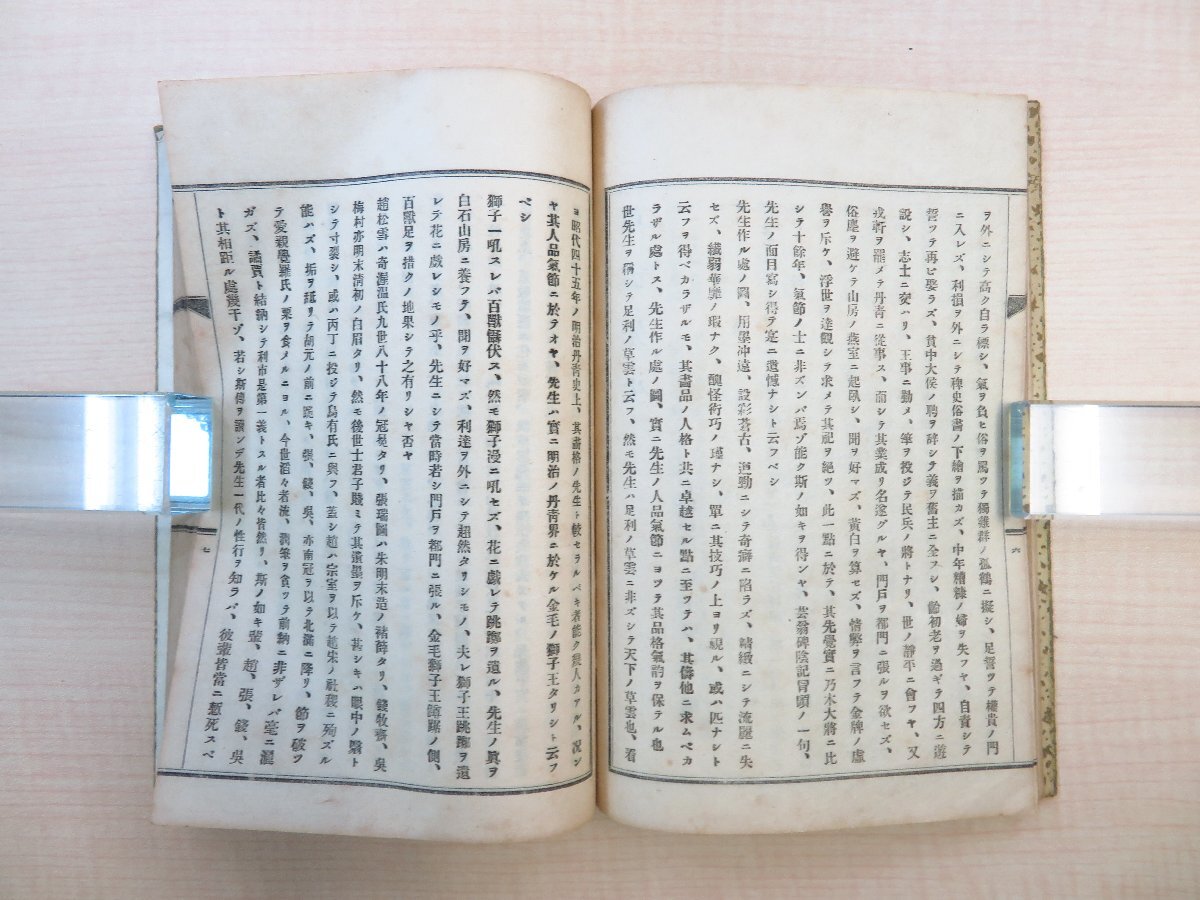 ヲ外ニシテ高ク自ラ標シ、氣ヲ負ヒ俗ヲ罵ツテ獨雞群ノ孤鶴ニ擬シ、足誓ツテ權貴ノ門
ニ入レズ、利損ヲ外ニシテ稗史俗書ノ下繪ヲ描カズ、中年糟糠ノ婦ヲ失フヤ、自責シテ
誓ツテ再ビ娶ラズ、貧中大侯ノ聘ヲ辭シテ義ヲ舊主ニ全フシ、齡初老ヲ過ギテ四方ニ遊
說シ、志士ニ交ハリ、王事ニ勤メ、筆ヲ投ジテ民兵ノ將トナリ、世ノ靜平ニ會フヤ、又
戎軒ヲ罷メテ丹靑ニ從事ス、而シテ其業成リ名遂グルヤ、門戶ヲ都門ニ張ルヲ欲セズ、
俗塵ヲ避ケテ山房ノ燕室ニ起臥シ、聞ヲ好マズ、黃白ヲ算セズ、情弊ヲ言フテ金牌ノ虛
譽ヲ斥ケ、浮世ヲ達觀シテ求メテ其祀ヲ絕ツ、此一點ニ於テ、其先覺實ニ乃木大將ニ比
シテ十餘年、氣節ノ士ニ非ズンバ焉ゾ能ク斯ノ如キヲ得ンヤ、芸翁碑陰記冒頭ノ一句、
先生ノ面目寫シ得テ寔ニ遺憾ナシト云フベシ
先生作ル處ノ圖、用墨沖遠、設彩蒼古、遒勁ニシテ奇癖ニ陷ラズ、緖緻ニシテ流麗ニ失
セズ、纖弱華靡ノ瑕ナク、醜怪術巧ノ瑾ナシ、單ニ其技巧ノ上ヨリ視ル、或ハ匹ナシト
云フヲ得ベカラザルモ、其書品ノ人格ト共ニ卓越セル點ニ至フテハ、其儔他ニ求ムベカ
ラザル處トス、先生作ル處ノ圖、實ニ先生ノ人品氣節ニヨツテ其品格氣韵ヲ保テル也
世先生ヲ稱シテ足利ノ草雲ト云フ、然モ先生ハ足利ノ草雲ニ非ズシテ天下ノ草雲也、看
六
ヨ昭代四十五年ノ明治丹靑史上、其畵格ノ先生ト較セラルベキ者能ク幾人カアル、況ン
ヤ其人品氣節ニ於テオヤ、先生ハ實ニ明治ノ丹靑界ニ於ケル金毛ノ獅子王タリシト云フ
ベシ
獅子一吼スレバ百獸慴伏ス、然モ獅子漫ニ吼セズ、花ニ戲レテ跳躑ヲ遺ル、先生ノ眞ヲ
白石山房ニ養フテ、聞ヲ好マズ、利達ヲ外ニシテ超然タリシモノ、夫レ獅子王跳躑ヲ遺
レテ花ニ戲レシモノ乎、先生ニシテ當時若シ門戶ヲ都門ニ張ル、金毛獅子王蹲踞ノ側、
百獸足ヲ措クノ地果シテ之有リシヤ否ヤ
趙松雪ハ奇渥溫氏九世八十八年ノ冠冕タリ、張瑞圖ハ朱明末造ノ禇薛タリ、錢牧齋、吳
梅村亦明末淸初ノ白眉タリ、然モ後世士君子賤ミテ其遺墨ヲ斥ケ、甚シキハ眼中ノ翳ト
シテ寸裂シ、或ハ丙丁ニ投ジテ烏有氏ニ與フ、蓋シ趙ハ宗室ヲ以テ趙宋ノ社稷ニ殉ズル
能ハズ、垢ヲ蒙リテ胡元ノ前ニ跪キ、張、錢、吳、亦南冠ヲ以テ北滿ニ降リ、節ヲ破ツ
テ愛親覺羅氏ノ粟ヲ食メルニヨル、今世滔々者流、潤筆ヲ貪ツテ前納ニ非ザレバ毫ニ灑
ガズ、諸賈ト結納シテ利市是第一義トスル者比々皆然リ、斯ノ如キ輩、趙、張、錢、吳
ト其相距ル處幾干ゾ、若シ斯傳ヲ讀ンデ先生一代ノ性行ヲ知ラバ、彼輩皆當ニ慙死スベ
七